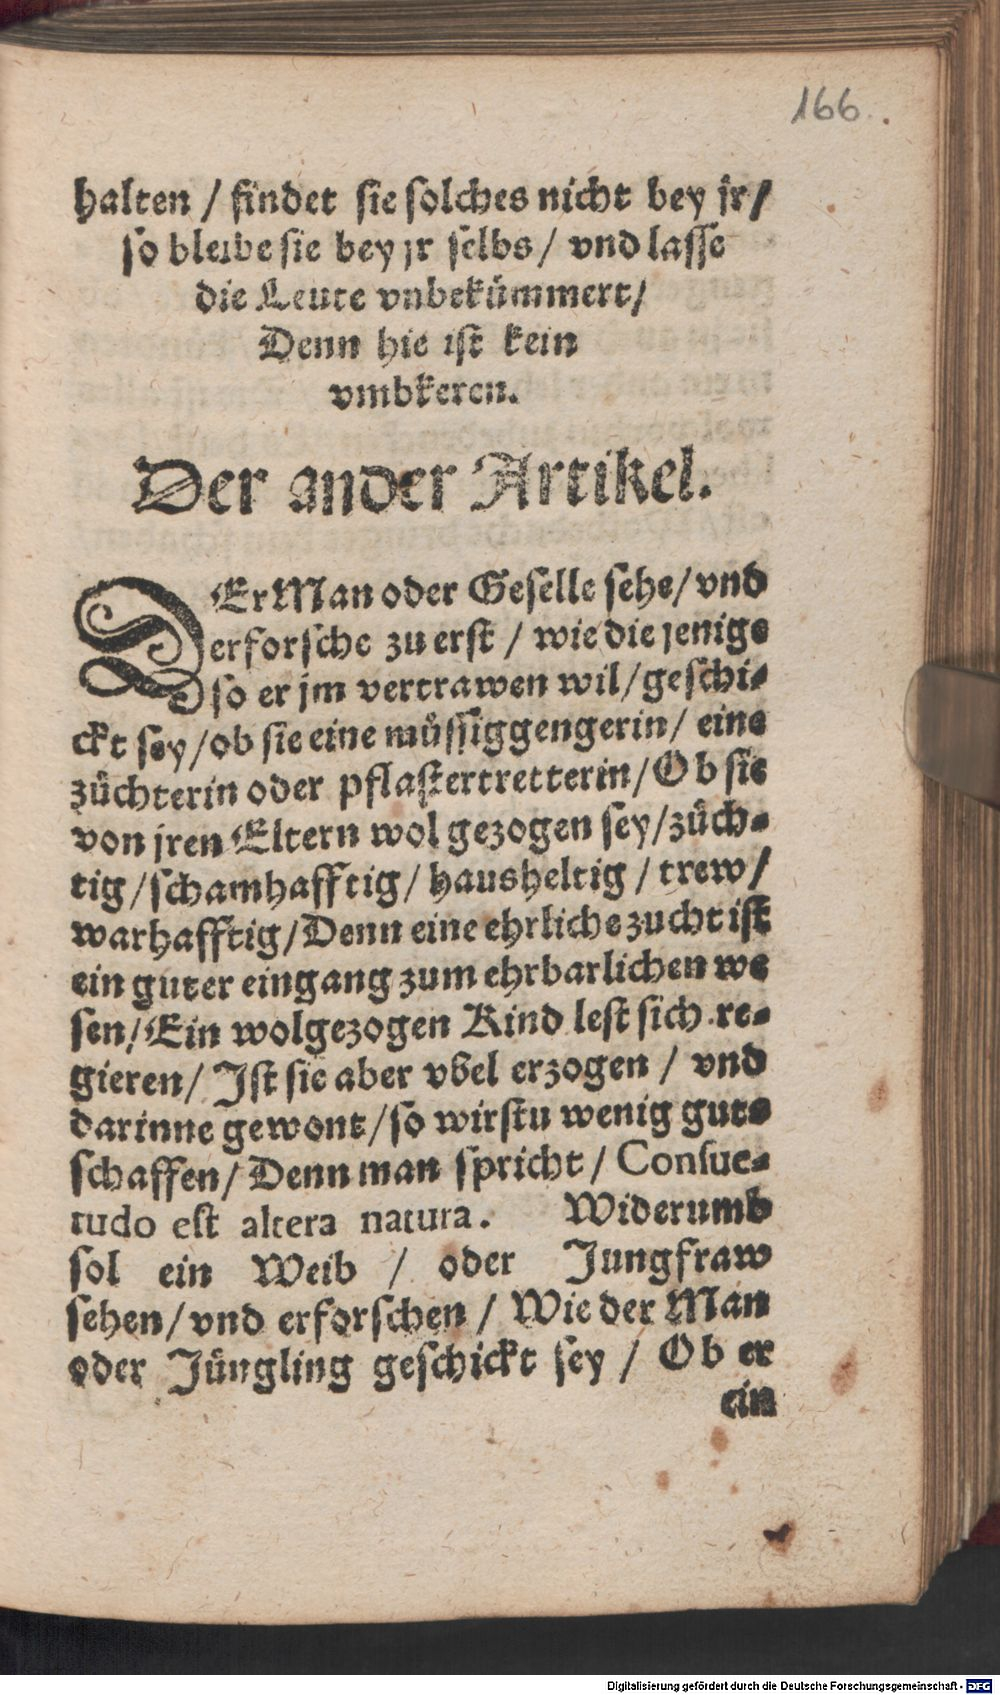 166.
halten / findet sie solches nicht bey jr /
so bleibe sie bey jr selbs / vnd lasse
die Leute vnbekümmert /
Denn hie ist kein
vmbkeren.
Der ander Artikel.
DEr Man oder Geselle sehe / vnd
erforsche zu erst / wie die jenige
so er jm vertrawen wil / geschi-
ckt sey / ob sie eine müssiggengerin / eine
züchterin oder pflastertretterin / Ob sie
von jren Eltern wol gezogen sey / züch-
tig / schamhafftig / hausheltig / trew /
warhafftig / Denn eine ehrliche zucht ist
ein guter eingang zum ehrbarlichen we
sen / Ein wolgezogen Kind lest sich re-
gieren / Ist sie aber vbel erzogen / vnd
darinne gewont / so wirstu wenig guts
schaffen / Denn man spricht / Consue-
tudo est altera natura. Widerumb
sol ein Weib / oder Jungfraw
sehen / vnd erforschen / Wie der Man
oder Jüngling geschickt sey / Ob er
ein
Digitalisierung gefördert durch die Deutsche Forschungsgemeinschaft - DFG